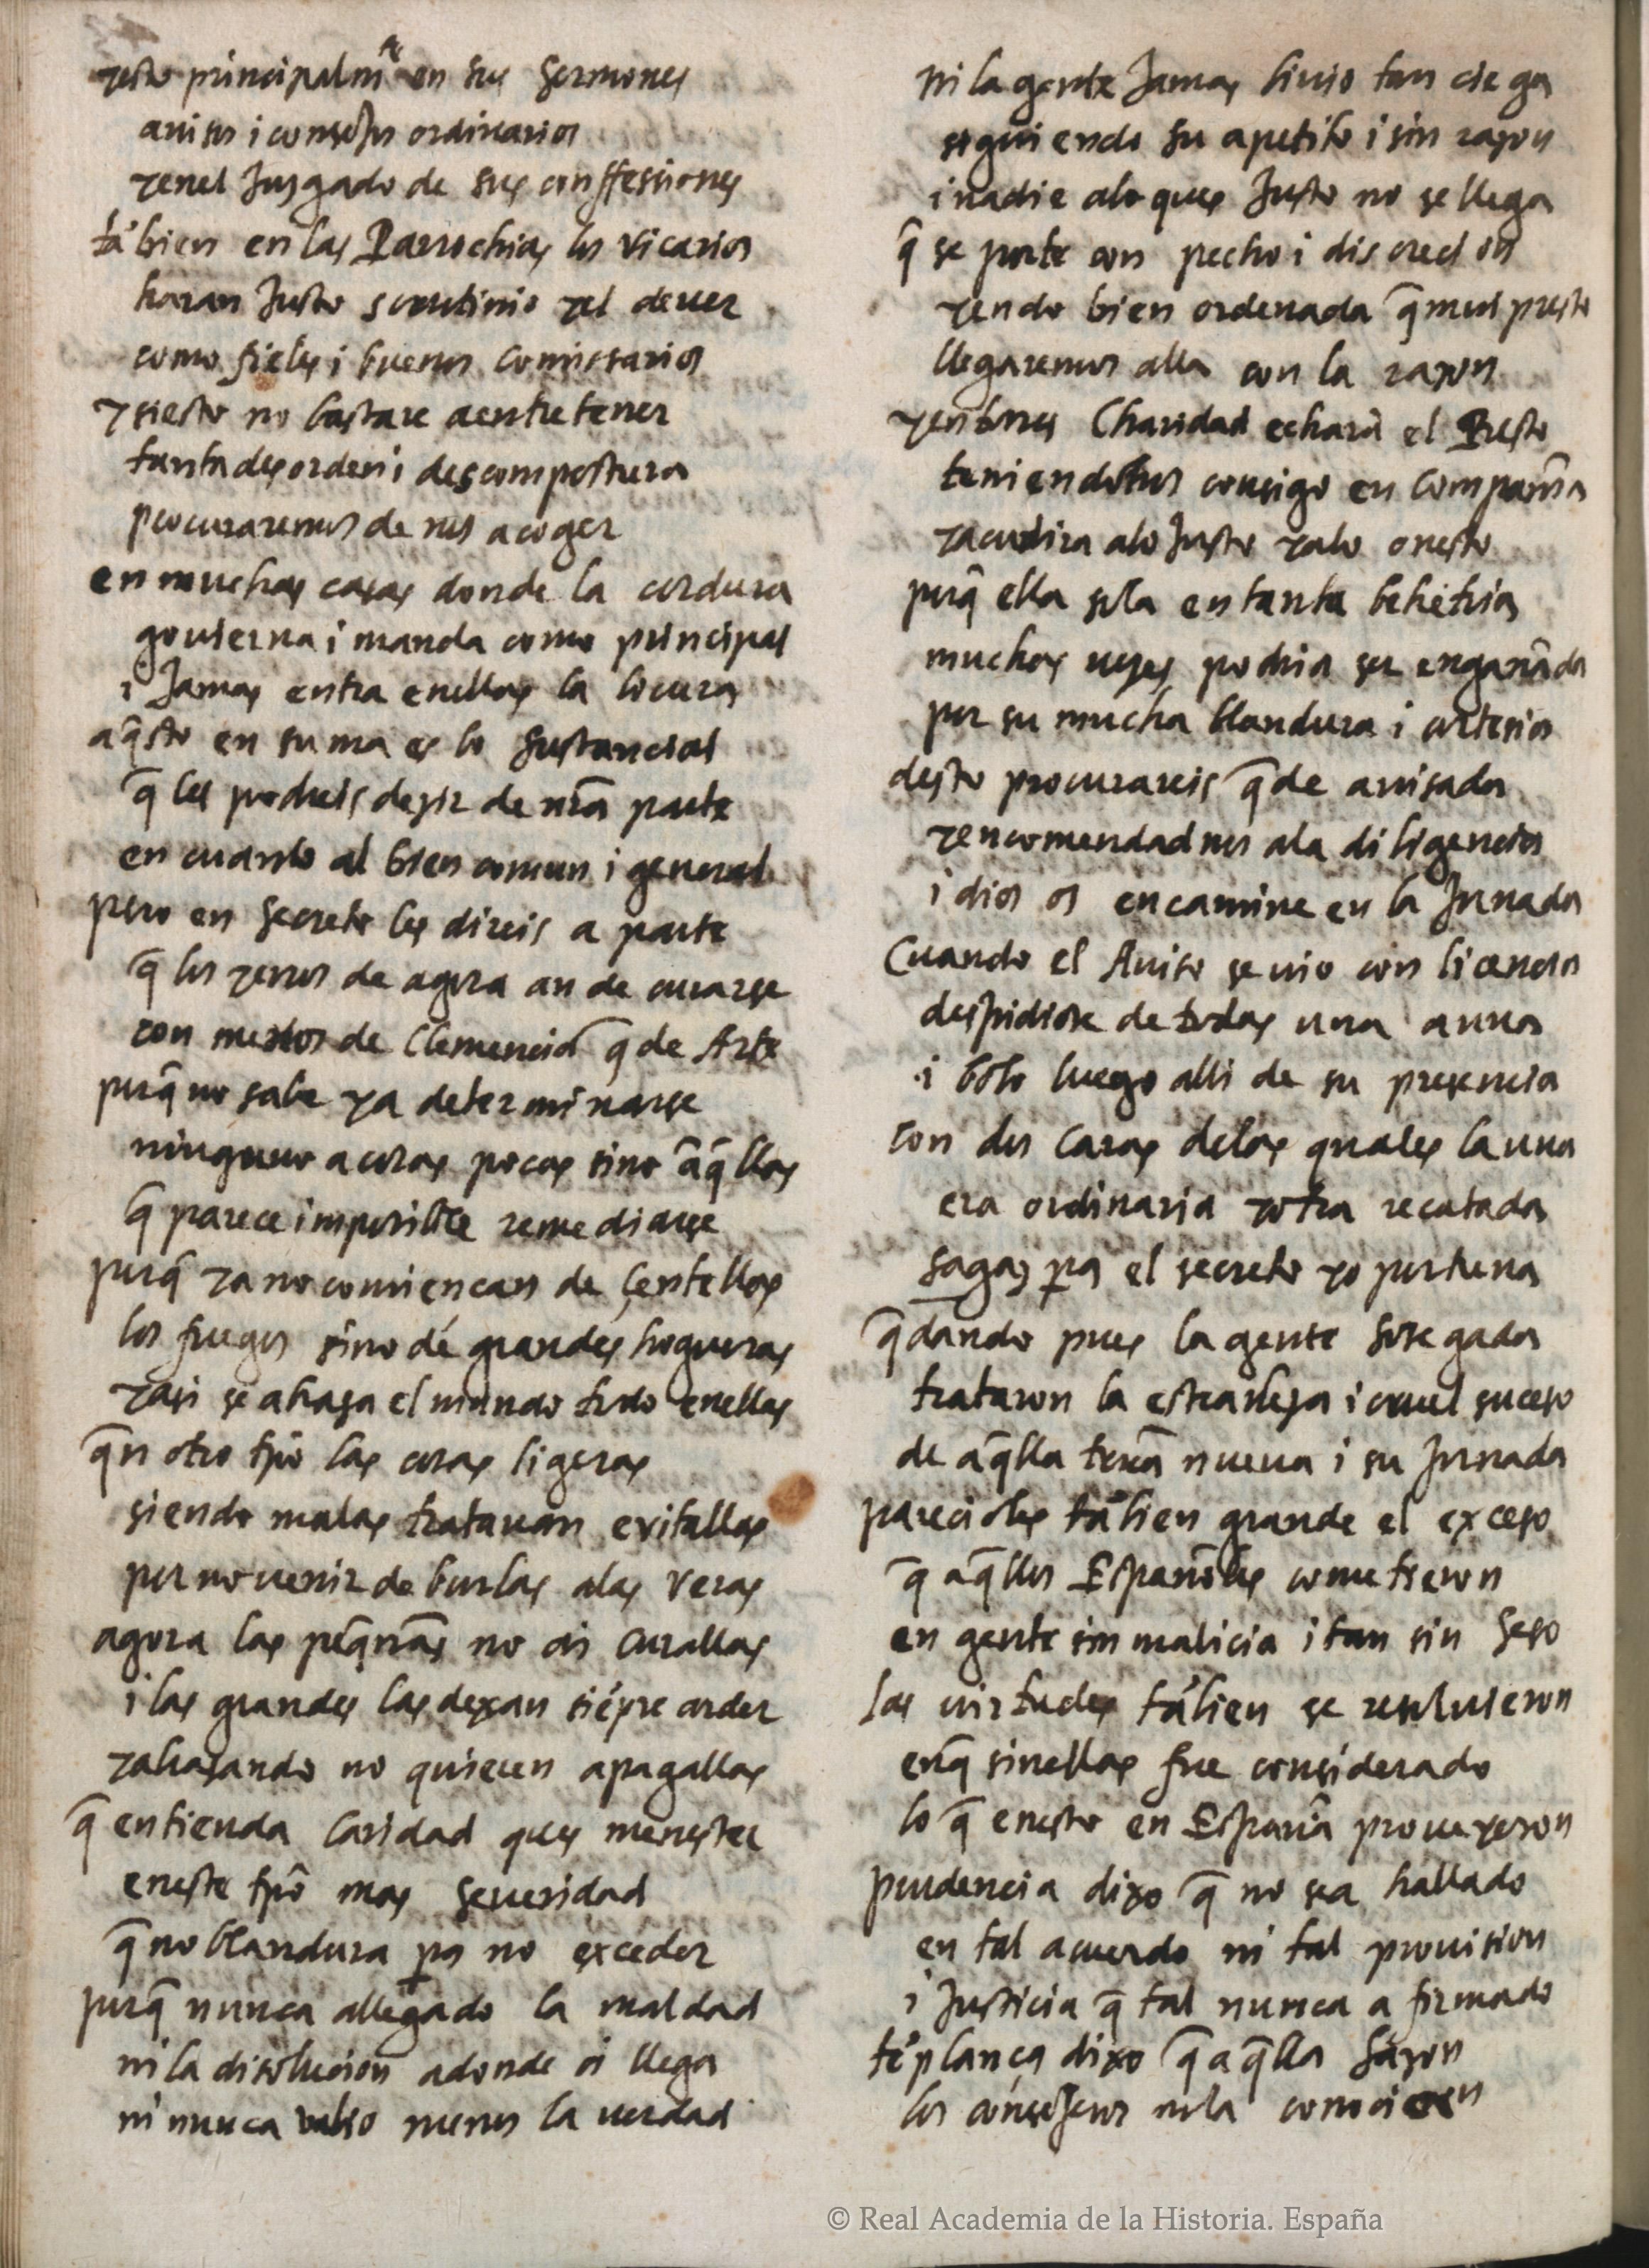 yesto principalmte en sus sermones
auisos i consejos ordinarios
yenel Jusgado de sus conffessiones
tābien en las Parrochias los vicarios
haran Justo scrutinio yel deuer
como fieles i buenos Comissarios
ysiesto no bastare aentretener
tanta desorden i descompostura
procuraremos de nos acoger
en muchas casas donde la cordura
gouierna i manda como principal
i Jamas entra enellas la locura
aq̄sto en suma es lo sustancial
q̄ les podreis dezir de nr̄a parte
en cuanto al bien comun i general
pero en secreto les direis a parte
q̄ los yerros de agora an de curarse
con medios de Clemencia q̄ de Arte
porq̄ no sabe ya determinarse
ninguno a cosas pocas sino āq̄llas
q̄ parece imposible remediarse
porq̄ ya no comiencan de çentellas
los fuegos sino dé grandes hogueras
yasi se abrasa el mundo todo enellas
q̄n otro tpō las cosas ligeras
siendo malas tratauan evitallas
por no uenir de burlas alas veras
agora las peq̄nās no ai curallas
i las grandes las dexan siēpre arder
yabrasando no quieren apagallas
q̄ entienda Caridad ques menester
eneste tpō mas seueridad
q̄ no blandura pa no exceder
porq̄ nunca allegado la maldad
ni la disolucion adonde oi llega
ni nunca valio menos la uerdad
ni la gente Jamas biuio tan ciega
siguiendo su apetito i sin razon
i nadie alo ques Justo no se llega
q̄ se porte con pecho i discrecion
yendo bien ordenada q̄ mui presto
llegaremos alla con la razon
yentonces Charidad echará el Resto
teniendotos consigo en Compañia
yacudira alo Justo yalo onesto
porq̄ ella sola en tanta behetria
muchas uezes podria ser engañada
por su mucha blandura i cortesia
desto procurareis q̄de auisada
yencomendadnos ala diligencia
i dios os encamine en la Jornada
Cuando el Auiso se uio con licencia
despidiose de todas una a una
i bolo luego alli de su presencia
con dos Caras delas quales la una
era ordinaria yotra recatada
sagaz pa el secreto yoportuna
q̄dando pues la gente sosegada
trataron la estrañeza i cruel suceso
de aq̄lla terrā nueua i su Jornada
parecioles tābien grande el exceso
q̄ aq̄llos Españoles cometieron
en gente sin malicia i tan sin seso
las uirtudes tābien se resoluieron
enq̄ sinellas fue considerado
lo q̄ enesto en España proueyeron
prudencia dixo q̄ no sea hallado
en tal acuerdo ni tal prouision
i Justicia q̄ tal nunca a firmado
tēplança dixo q̄ aq̄lla sazon
los consejeros nola conocieron
© Real Academia de la Historia. España